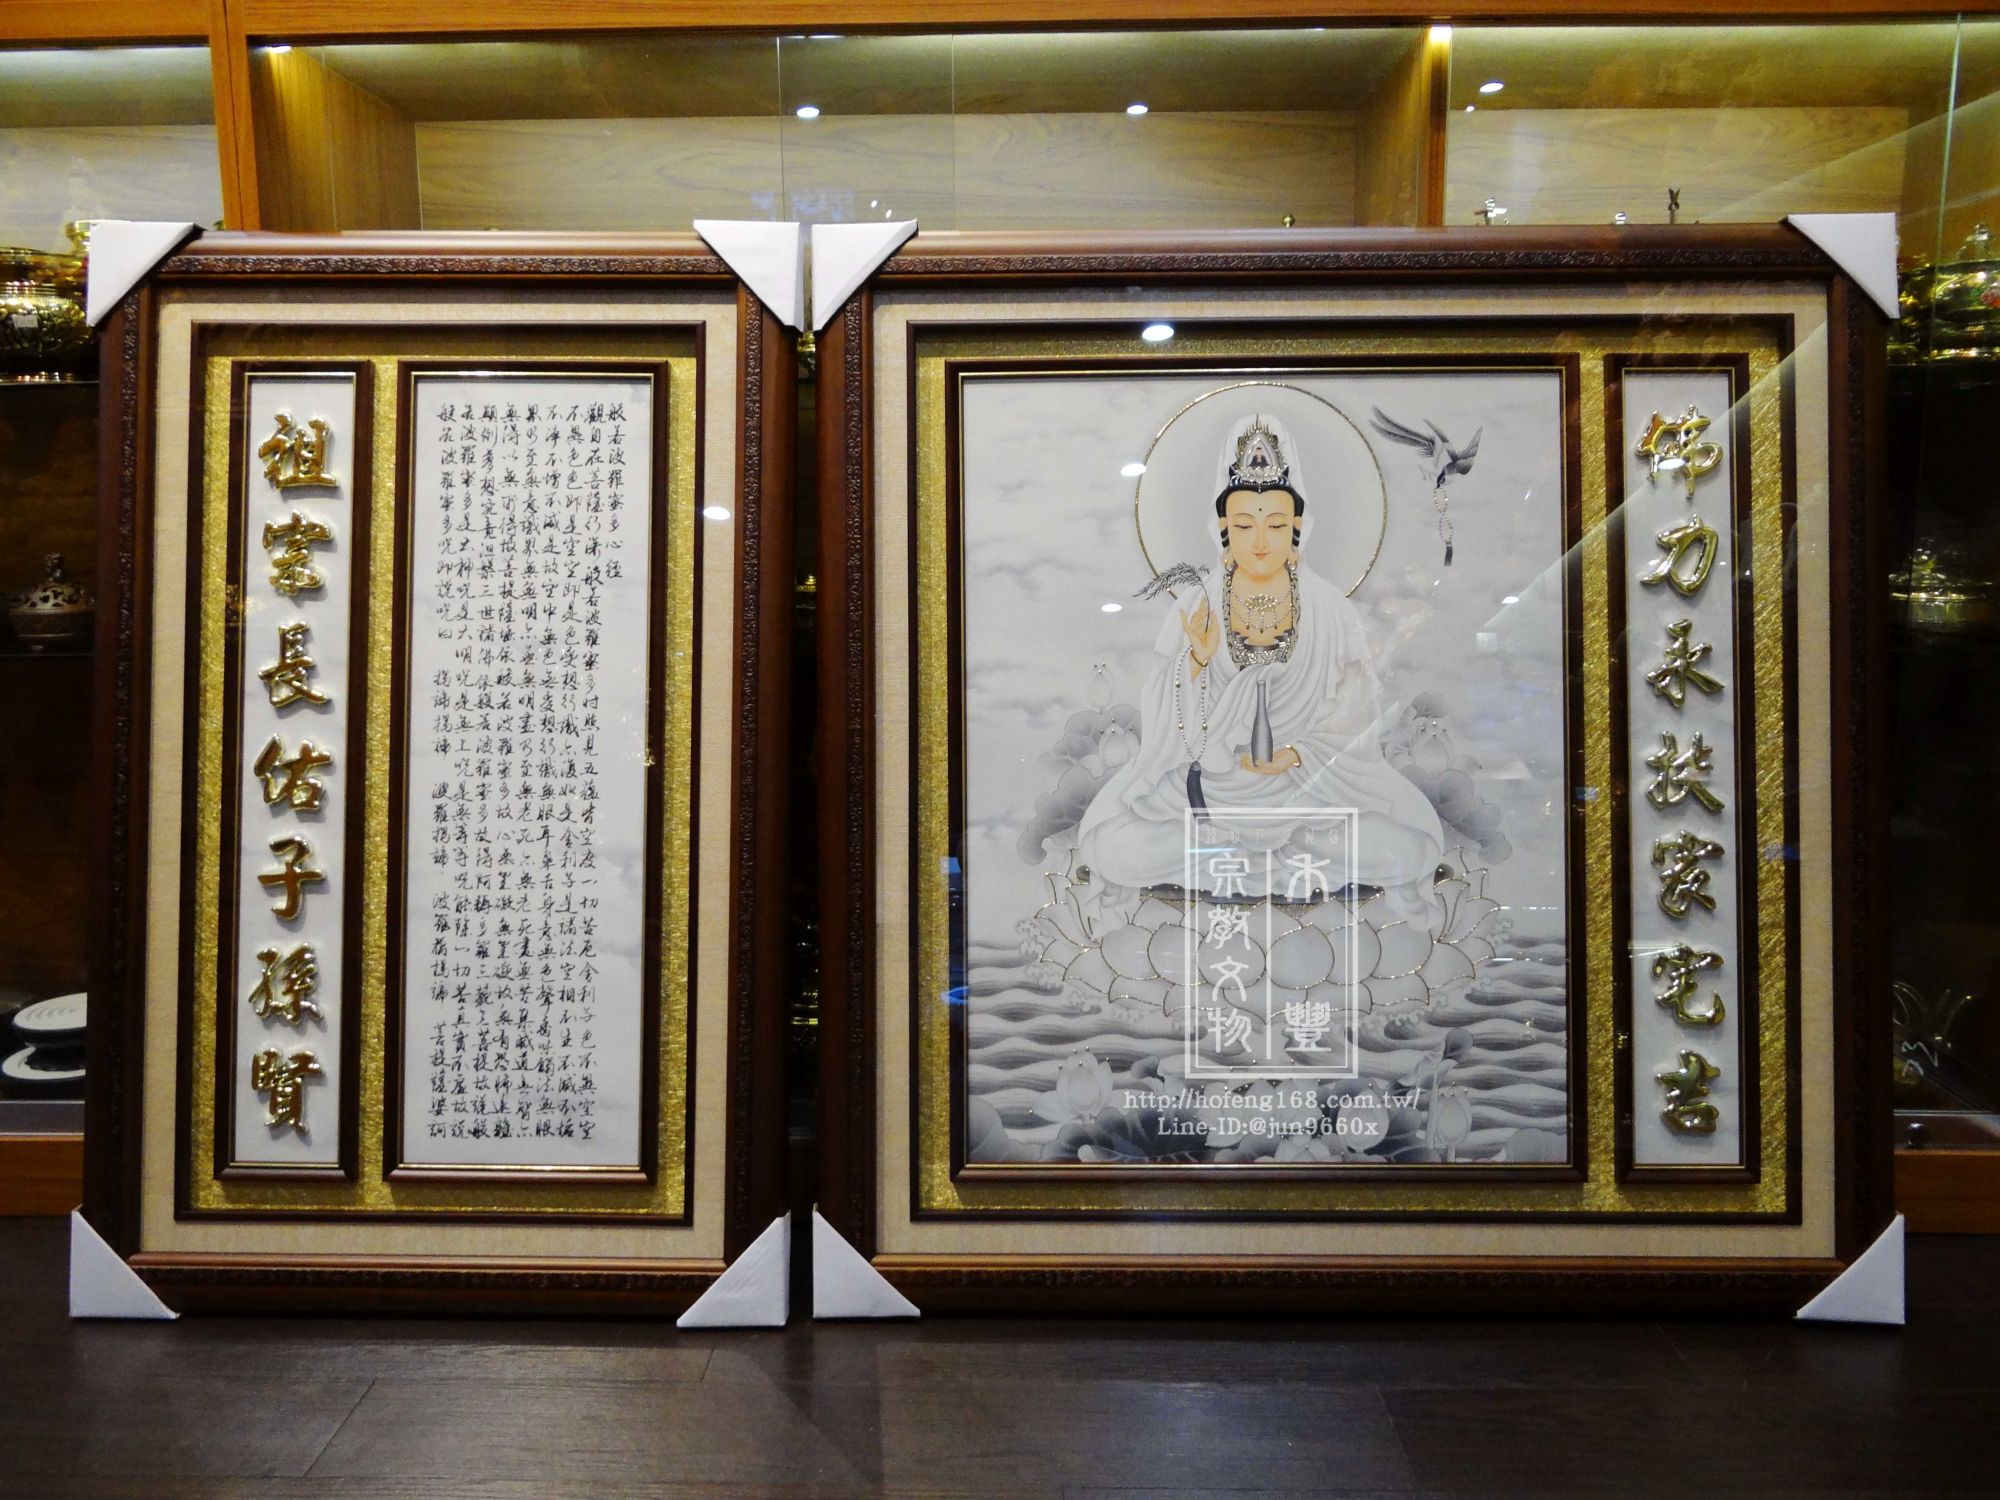 佛力永扶家宅吉
祖宗長佑子孫賢
般若波羅蜜多心經
觀自在菩薩行深般若波羅蜜多時照見五蘊皆空度一切苦厄舍利子色不異空空
不異色色即是空空即是色受想行識亦復如是舍利子是諸法空相不生不滅不垢
不淨不增不減是故空中無色無受想行識無眼耳鼻舌身意無色聲香味觸法無眼
界乃至無意識界無無明亦無無明盡乃至無老死亦無老死盡無苦集滅道無智亦
無得以無所得故菩提薩埵依般若波羅蜜多故心無罣礙無罣礙故無有恐怖遠離
顛倒夢想究竟涅槃三世諸佛依般若波羅蜜多故得阿耨多羅三藐三菩提故說般
若波羅蜜多是大神咒是大明咒是無上咒是無等等咒能除一切苦真實不虛故說
般若波羅蜜多咒即說咒曰 揭諦揭諦 波羅揭諦 波羅僧揭諦 菩提薩婆訶
HOFENG
禾豐
宗教文物
http://hofeng168.com.tw/
Line-ID:@jun9660x